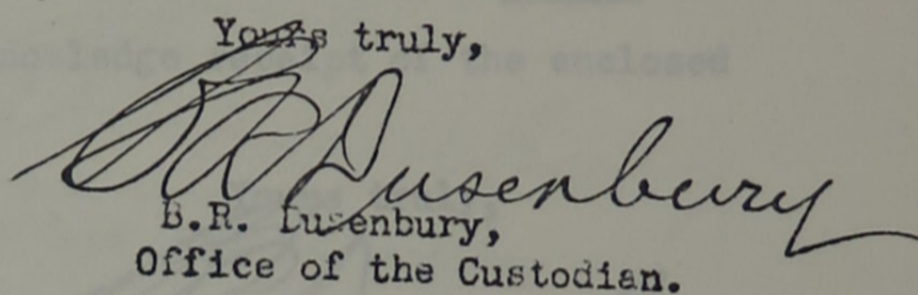 Yours truly,
BR Dusenbury
B.R. Dusenbury,
Office of the Custodian.